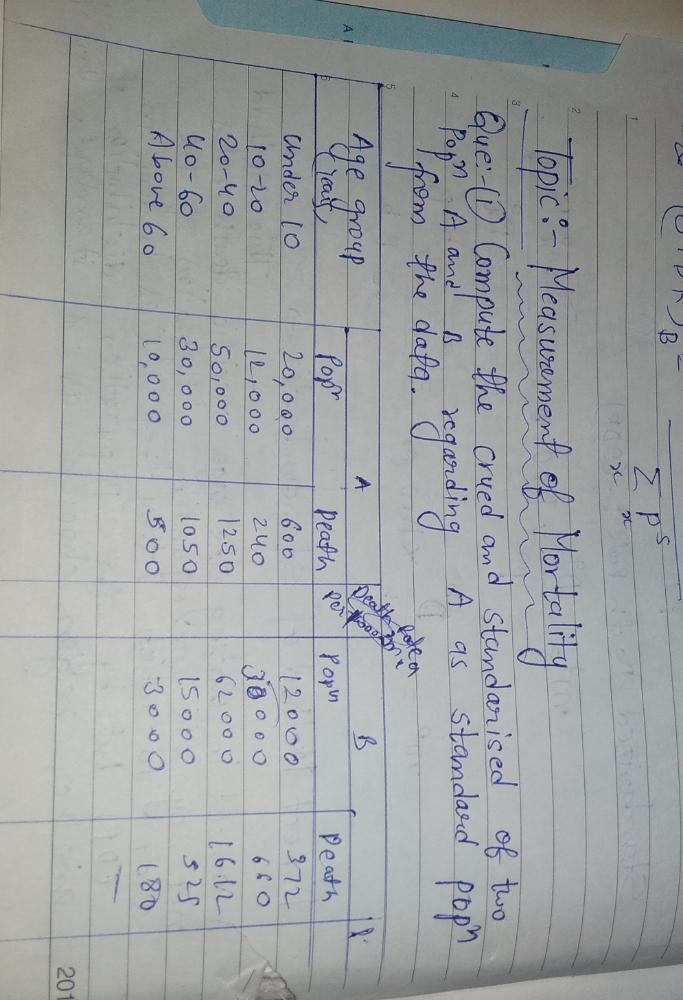 Topic:- Measurement of Mortality
Que:-(1) Compute the crued and standarised of two
Popn A and B regarding A as standard popn
from the data.
Age group A B
Popn Death Popn Death
Under 10 20,000 600 12000 372
10-20 12,000 240 000 660
20-40 50,000 1250 62000 1612
40-60 30,000 1050 15000 525
Above 60 10,000 500 3000 180
201